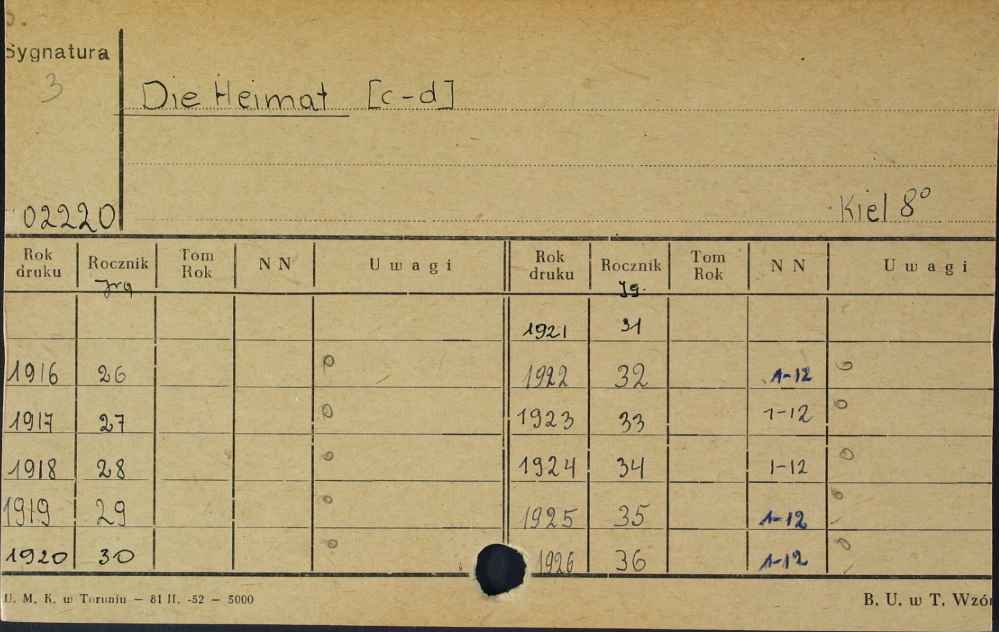 Sygnatura
3
Die Heimat [c-d]
02220
Kiel 8°
Rok druku Rocznik Tom Rok N N Uwagi Rok druku Rocznik Tom Rok N N Uwagi
Jrg Jg.
1921 31
1916 26 0 1922 32 1-12 0
1917 27 0 1923 33 1-12 0
1918 28 0 1924 34 1-12 0
1919 29 0 1925 35 1-12 0
1920 30 0 1926 36 1-12 0
U. M. K. w Toruniu — 81 II. -52 — 5000
B. U. w T. Wzór